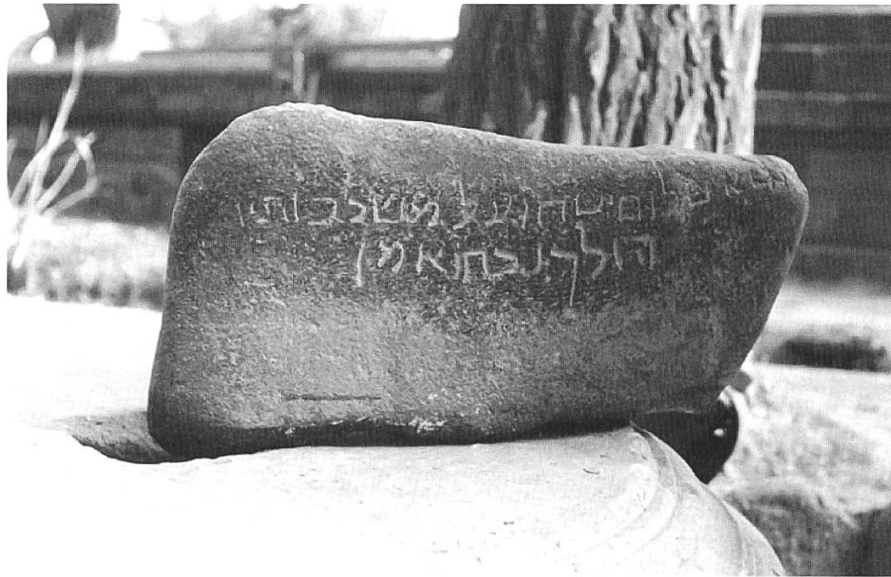 יבוא שלום ינוח על משכבותיו
הולך נכחו אמן